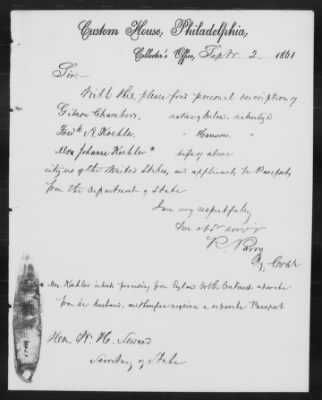 Custom House, Philadelphia,
Collector's Office, Sept. 2 1861
Sir:—
With this, please find personal description of
Gideon Chambers, native of Ireland, naturalized
Fred.k A. Koehler, " Hanover, "
Mrs Johanne Koehler* wife of above
citizens of the United States, and applicants for Passports
from the Department of State
I am very respectfully
Your obdt serv't
Dy. Collr
* Mrs. Koehler intends proceeding from England to the Continent separate
from her husband, and therefore requires a separate Passport
Hon. W. H. Seward
Secretary of State